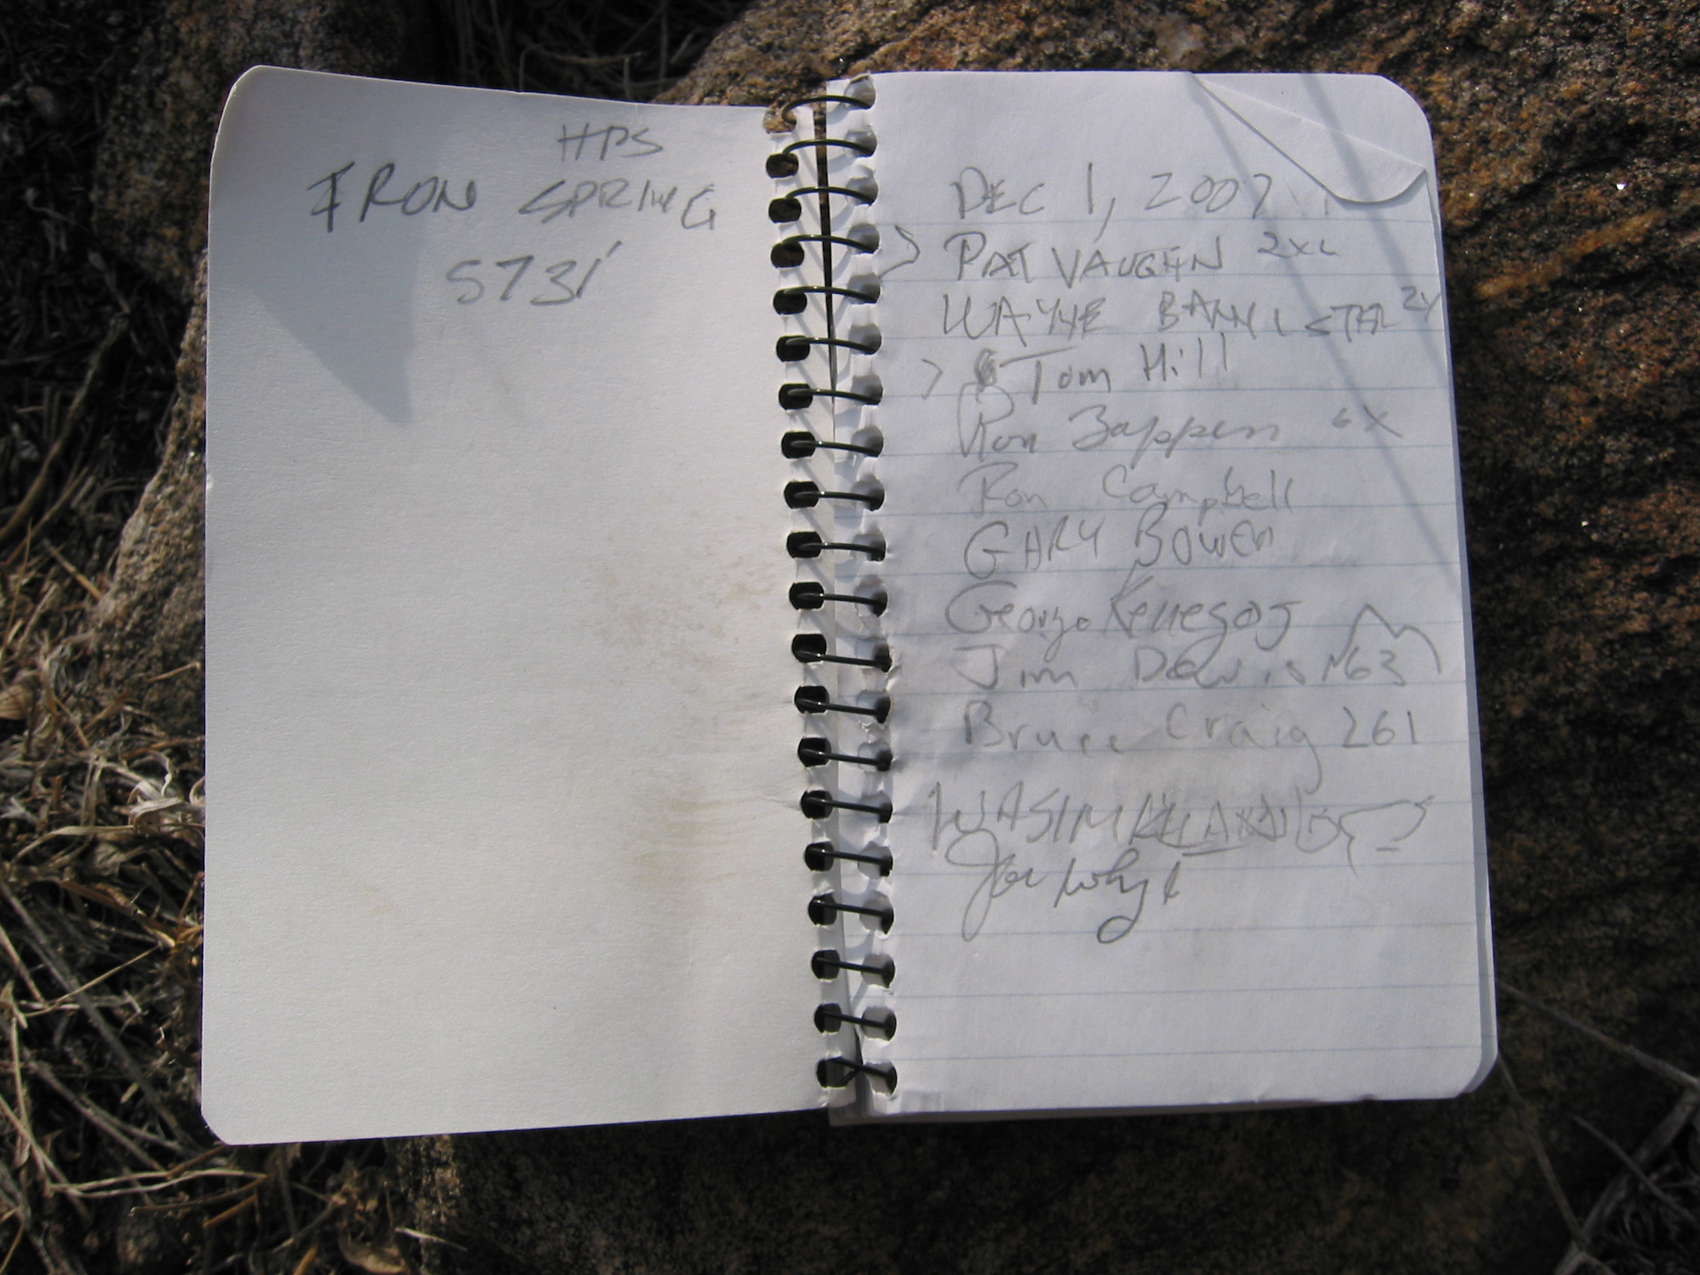 HPS
IRON SPRING
5731'
DEC 1, 2007
PAT VAUGHN 2XL
WAYNE BANNISTER 2X
Tom Hill
Ron Zappen 6X
Ron Campbell
GARY BOWEN
George
Jim 163
Bruce Craig 261
WASIM
Joe